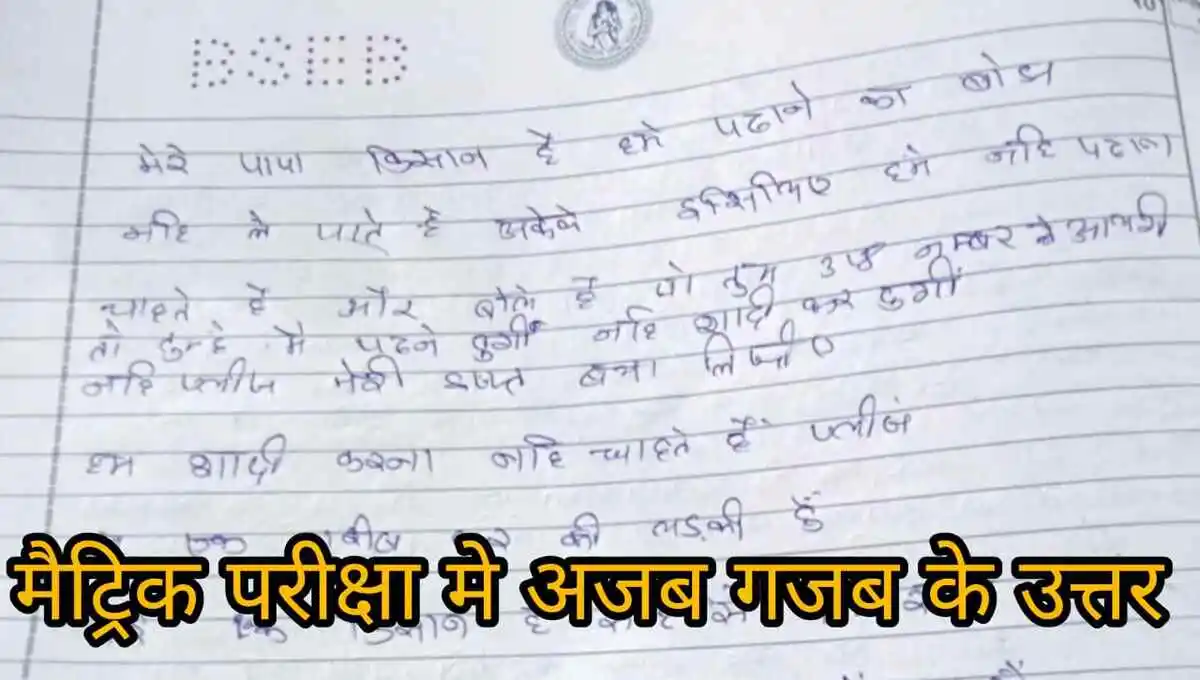 BSEB
मेरे पापा किसान है हमे पढाने का बोझ
नहि ले पाते है इसिलिए हमे नहि पढाना
चाहते है और बोले है नम्बर से
तो तुम्हे मै पढने दुगीं नहि शादी कर दुगीं
नहि प्लीज मेरी इज्जत बचा लिजीए
हम शादी करना नहि चाहते हैं प्लीजं
एक की लडकी हुँ
मैट्रिक परीक्षा मे अजब गजब के उत्तर
एक किसान है